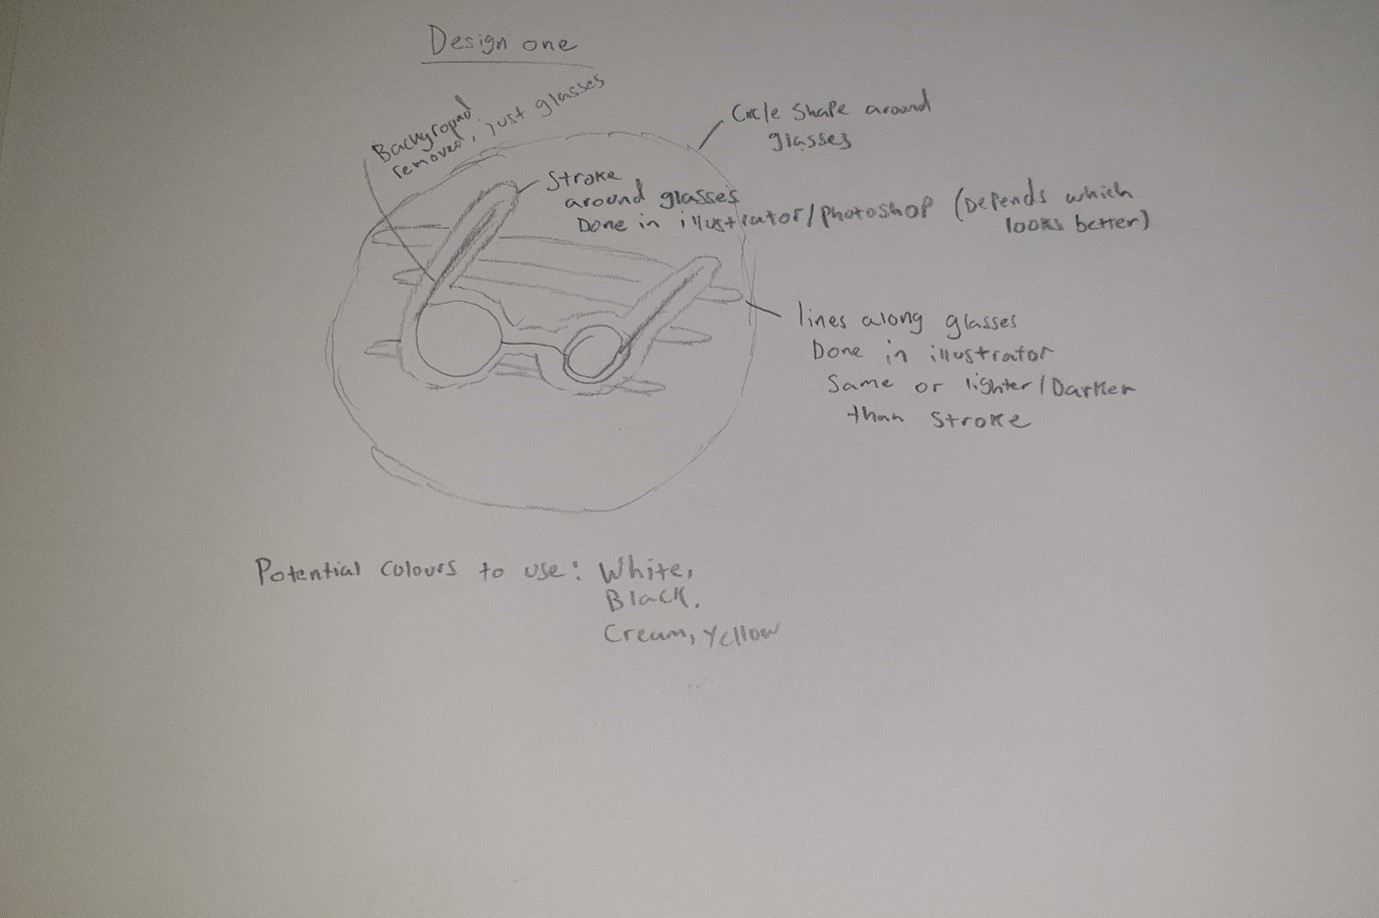 Design one
Background
removed, just glasses
Circle Shape around
glasses
Stroke
around glasses
Done in illustrator/photoshop (Depends which
looks better)
lines along glasses
Done in illustrator
Same or lighter/Darker
than Stroke
Potential colours to use: White,
Black.
Cream, Yellow